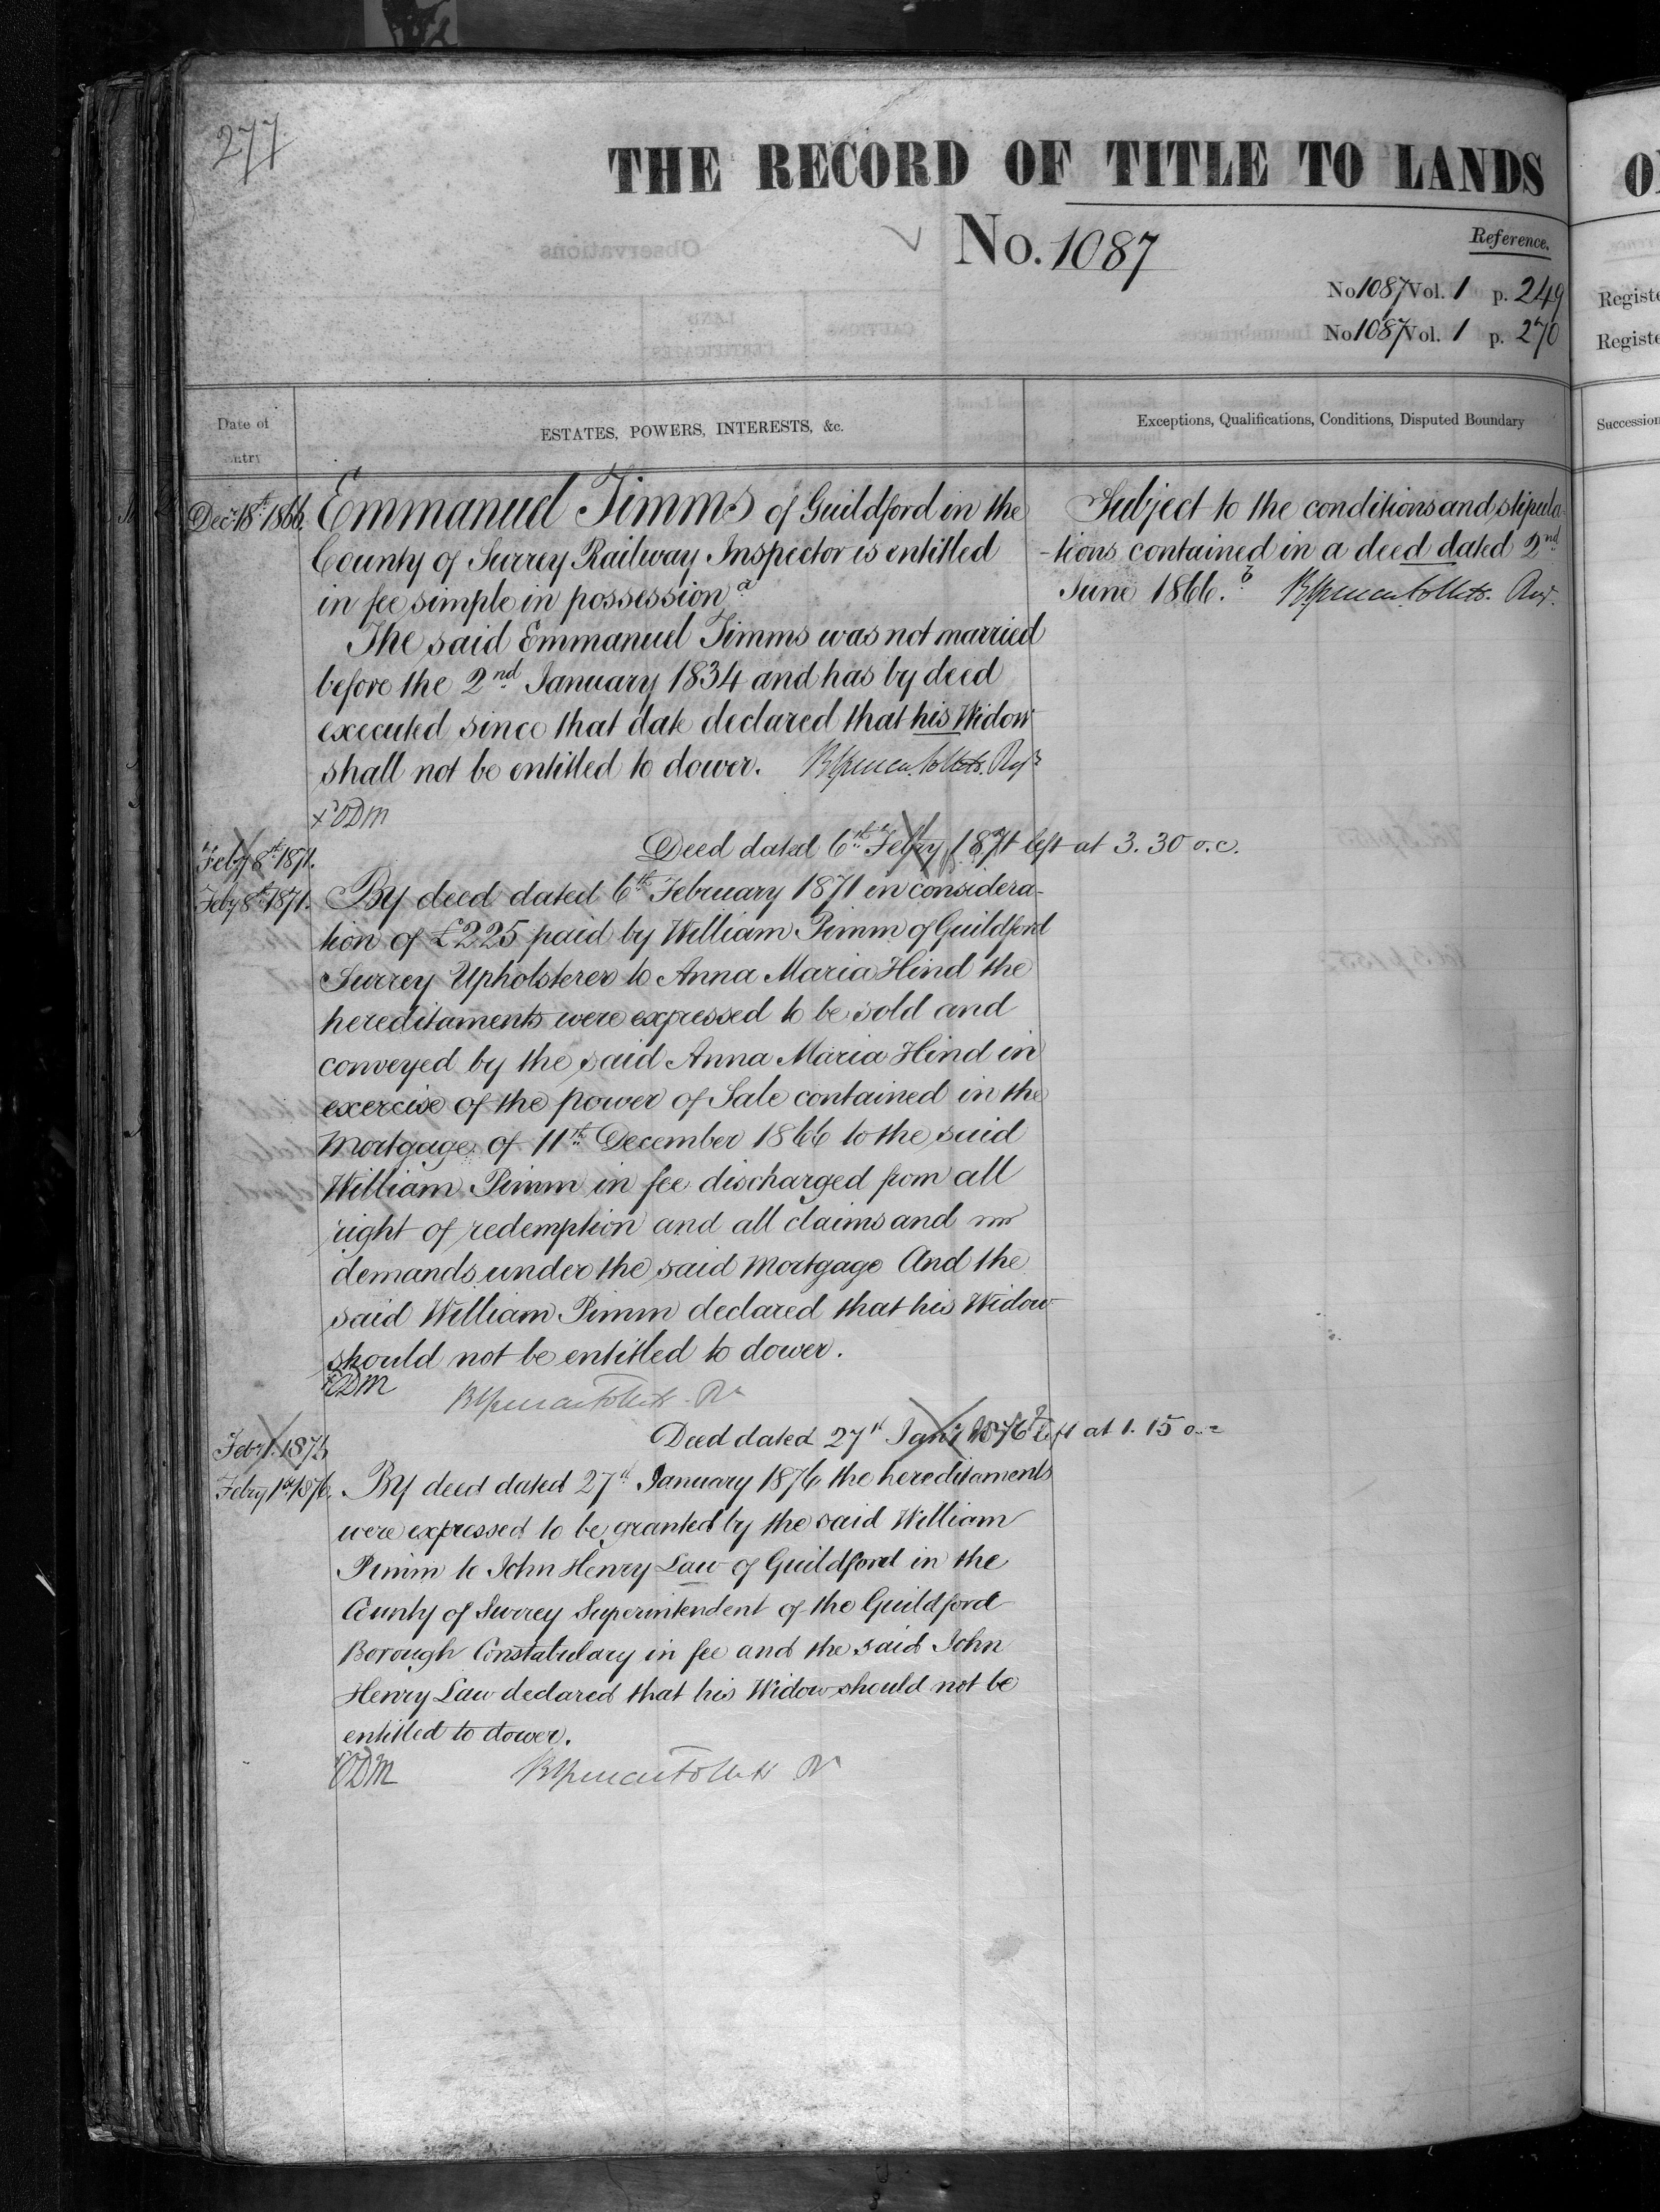 277
THE RECORD OF TITLE TO LANDS
No. 1087
Reference.
No 1087 Vol. 1 p. 249
No 1087 Vol. 1 p. 270
Registe
Registe
Date of
ntry
ESTATES, POWERS, INTERESTS, &c.
Exceptions, Qualifications, Conditions, Disputed Boundary
Succession
Decr 18th 1866.
Emmanuel Timms of Guildford in the
County of Surrey Railway Inspector is entitled
in fee simple in possession a
The said Emmanuel Timms was not married
before the 2nd January 1834 and has by deed
executed since that date declared that his Widow
shall not be entitled to dower.
Subject to the conditions and stipula
-tions contained in a deed dated 2nd
June 1866. b
ODM
Feby 8th 1871.
Deed dated 6th Febry 1871 left at 3.30 o.c.
Feby 8th 1871.
By deed dated 6th February 1871 in considera-
tion of £225 paid by William Pimm of Guildford
Surrey Upholsterer to Anna Maria Hind the
hereditaments were expressed to be sold and
conveyed by the said Anna Maria Hind in
exercise of the power of Sale contained in the
Mortgage of 11th December 1866 to the said
William Pimm in fee discharged from all
right of redemption and all claims and
demands under the said Mortgage And the
said William Pimm declared that his Widow
should not be entitled to dower.
ODM
Deed dated 27th Jany 1876 left at 1.15 o.c
Febry 1st 1876.
By deed dated 27th January 1876 the hereditaments
were expressed to be granted by the said William
Pimm to John Henry Law of Guildford in the
County of Surrey Superintendent of the Guildford
Borough Constabulary in fee and the said John
Henry Law declared that his Widow should not be
entitled to dower.
ODM